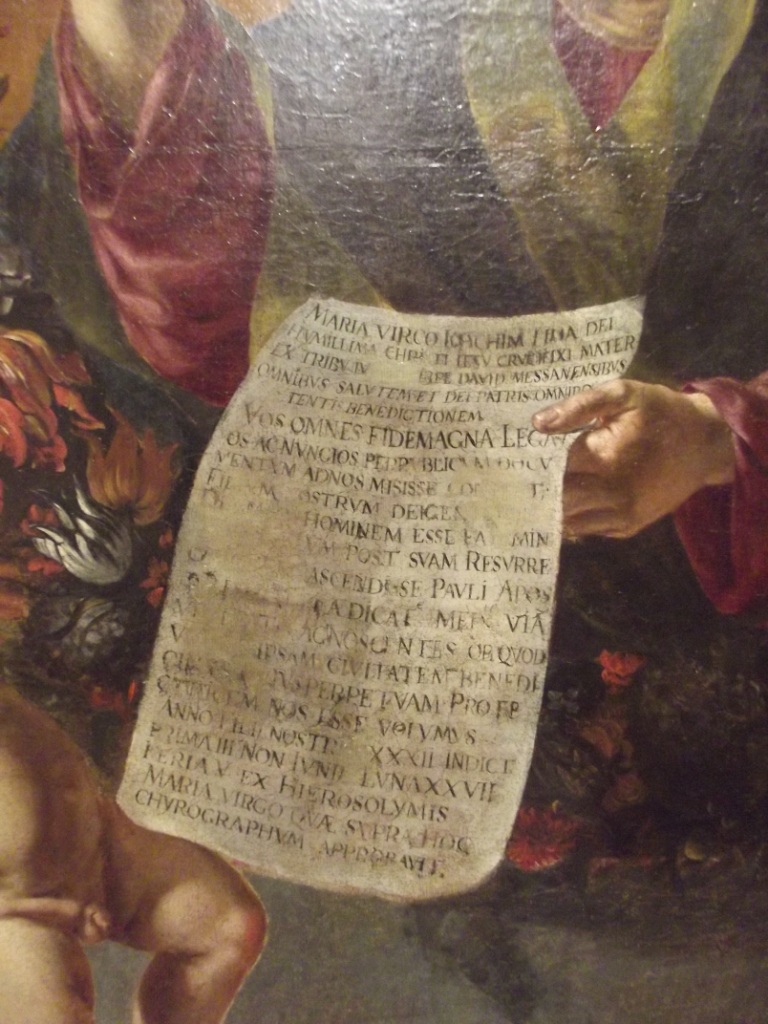 MARIA VIRGO IOACHIM FILIA DEI
HVMILLIMA CHRI TI IESV CRVCIFIXI MATER
EX TRIBV IV DAVID MESSANENSIBVS
OMNIBVS SALVTEM ET DEI PATRIS OMNIPO
TENTI BENEDICTIONEM
VOS OMNES FIDE MAGNA LEGAT
OS AC NVNCIOS PER PVBLICVM DOCV
MENTVM AD NOS MISISSE CO T
FIL M OSTRVM DEI GEN
HOMINEM ESSE FA MIN
VM POST SVAM RESVRRE
ASCENDISSE PAVLI APOS
CA DICAT MED VIÃ
AGNOSCENTES OB QVOD
V IPSAM CIVITATEM BENEDI
CIMVS A VS PERPETVAM PROTE
CTRICEM NOS ESSE VOLVMVS
ANNO FILII NOSTR XXXII INDICT
PRIMA III NON IVNII LVNA XXVII
FERIA V EX HIEROSOLYMIS
MARIA VIRGO QVÆ SVPRA HOC
CHYROGRAPHVM APPROBAVIT.